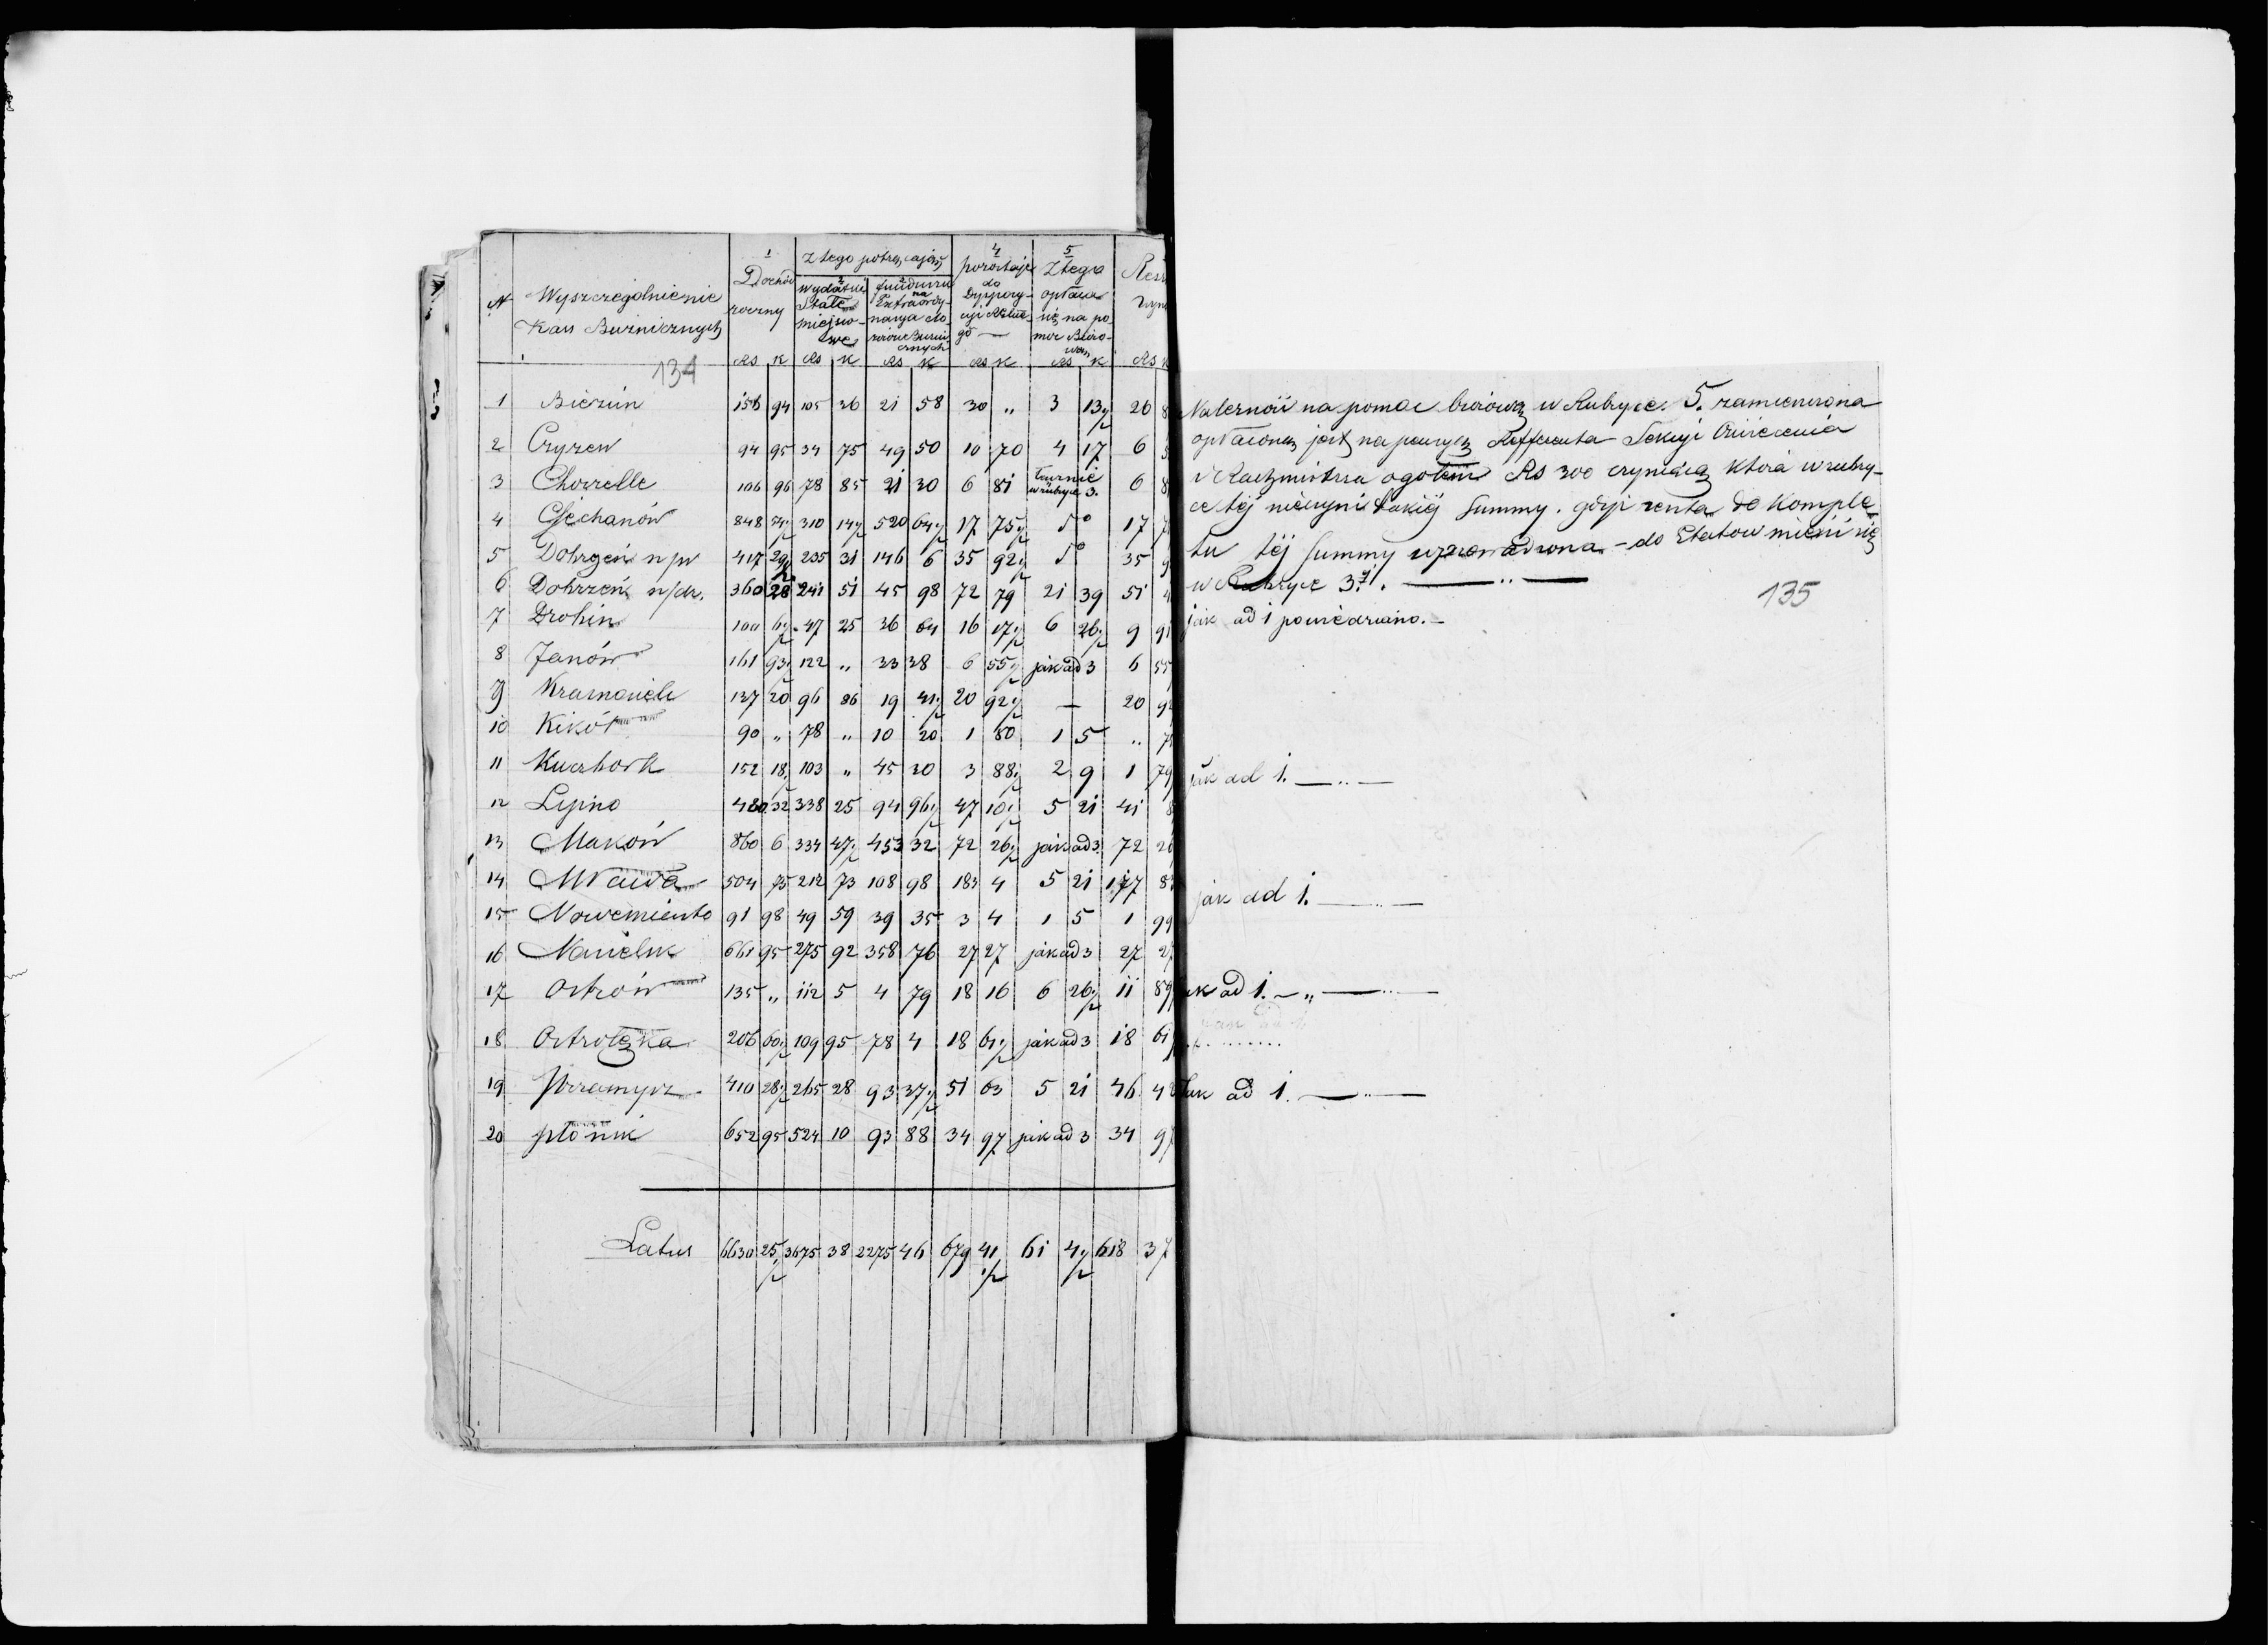 № Wyszczególnienie Kass Bużnicznych
1 Dochód roczny Rs k
Z tego potrącają:
2 wydatki Stałe miejscowe Rs k
funduszu na Extraordynarya Rs k
4 pozostaje do Dyspozycyi Rs k
5 Z tego opłaca się na pomoc Biórową Rs k
Rs
134
1 Bieżuń 156 94 105 36 21 58 30 „ 3 13½ 26
2 Czyzew 94 95 34 75 49 50 10 70 4 17 6
3 Chorzelle 106 96 78 85 21 30 6 81 w rubryce 3. 6
4 Ciechanów 848 54½ 310 14½ 520 64½ 17 75½ do 17
5 Dobrzeń n/w 417 29½ 235 31 146 6 35 92½ do 35
6 Dobrzeń n/dr. 360 28 241 51 45 98 72 79 21 39 51
7 Drobin 100 6½ 47 25 36 64 16 17½ 6 26½ 9
8 Janów 161 93½ 122 „ 33 38 6 55½ jak ad 3 6 55
9 137 20 96 86 19 41½ 20 92½ — 20
10 Kikół 90 „ 78 „ 10 20 1 80 1 5 „
11 Kuczbork 152 18½ 103 „ 45 30 3 88½ 2 9 1 79
12 Lipno 480 32 338 25 94 96½ 47 10½ 5 21 41
13 Maków 860 6 334 47½ 453 32 72 26½ jak ad 3. 72 26
14 Mława 504 75 212 73 108 98 183 4 5 21 177 83
15 Nowemiasto 91 98 49 59 39 35 3 4 1 5 1 99
16 Nasielsk 661 95 275 92 358 76 27 27 jak ad 3 27 27
17 Ostrów 135 „ 112 5 4 79 18 16 6 26½ 11 89
18 Ostrołęka 206 60½ 109 95 78 4 18 61½ jak ad 3 18 61
19 Przasnysz 410 28½ 265 28 93 37½ 51 63 5 21 46 42
20 Płońsk 652 95 524 10 93 88 34 97 jak ad 3 34 97
Latus 6630 25½ 3675 38 2275 46 679 41½ 61 4½ 618 37
Należność na pomoc biórową w Rubryce 5. zamieniona
opłaconą jest na pensyą Refferenta Sekcyi Oświecenia
i Rachmistrza ogółem Rs 300 czyniącą która w rubry-
ce tej nieczyni takiéj Summy. gdyż reszta do Komple
tu téj Summy wprowadzona - do Etatow mieści się
w Rubryce 3éj. — „ —
135
jak ad 1 powiedziano. —
jak ad 1. — „ —
jak ad 1. — „ —
jak ad 1. — „ —
jak ad 1. — „ —